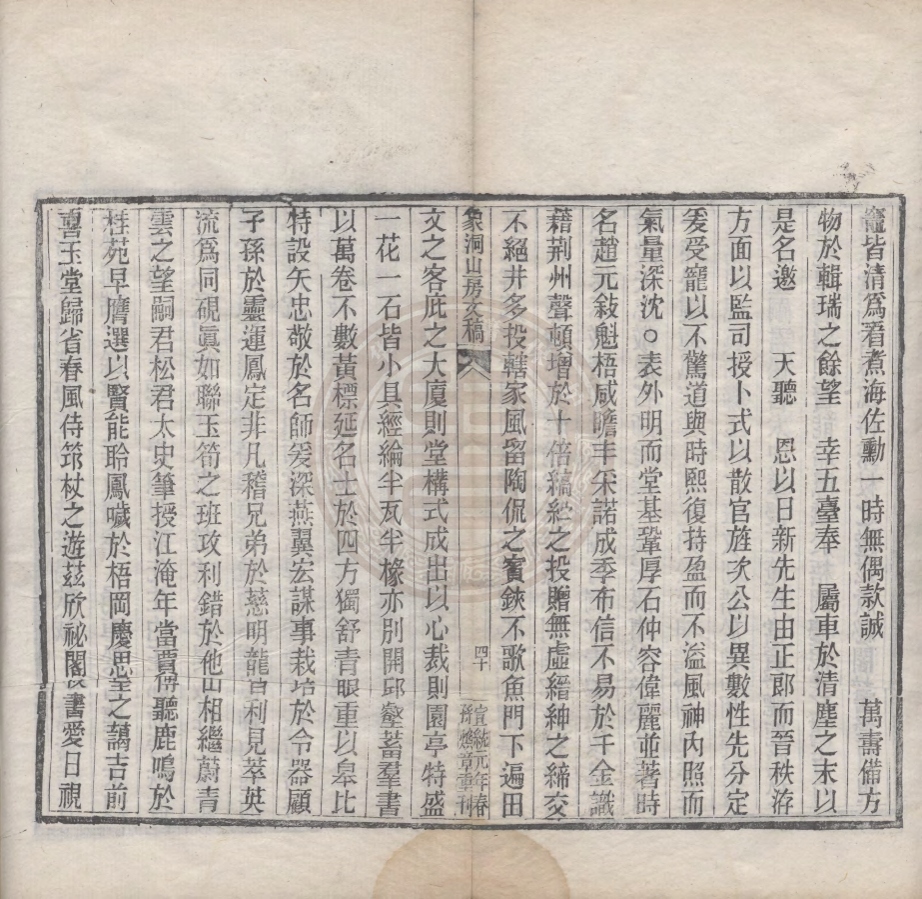 竈皆清爲看煮海佐勳一時無偶款誠　　萬壽備方
物於輯瑞之餘望　幸五臺奉　屬車於清塵之末以
是名邀　天聽　恩以日新先生由正郎而晉秩洊
方面以監司授卜式以散官旌次公以異數性先分定
爰受寵以不驚道與時熙復持盈而不溢風神內照而
氣量深沈○表外明而堂基鞏厚石仲容偉麗並著時
名趙元敍魁梧咸瞻丰采諾成季布信不易於千金識
藉荆州聲頓增於十倍縞紵之投贈無虛縉紳之締交
不絕井多投轄家風留陶侃之賓鋏不歌魚門下遍田
象洞山房文稿　四十　宣統元年春豫燃章重刊
文之客庇之大廈則堂構式成出以心裁則園亭特盛
一花一石皆小具經綸半瓦半椽亦別開邱壑蓄羣書
以萬卷不數黃標延名士於四方獨舒青眼重以皋比
特設矢忠敬於名師爰深燕翼宏謀事栽培於令器顧
子孫於靈運鳳定非凡稽兄弟於慈明龍占利見萃英
流爲同硯眞如聯玉筍之班攻利錯於他山相繼蔚青
雲之望嗣君松君太史筆授江淹年當賈傅聽鹿鳴於
桂苑早膺選以賢能聆鳳噦於梧岡慶思皇之藹吉前
喜玉堂歸省春風侍笻杖之遊茲欣祕閣 書愛日視